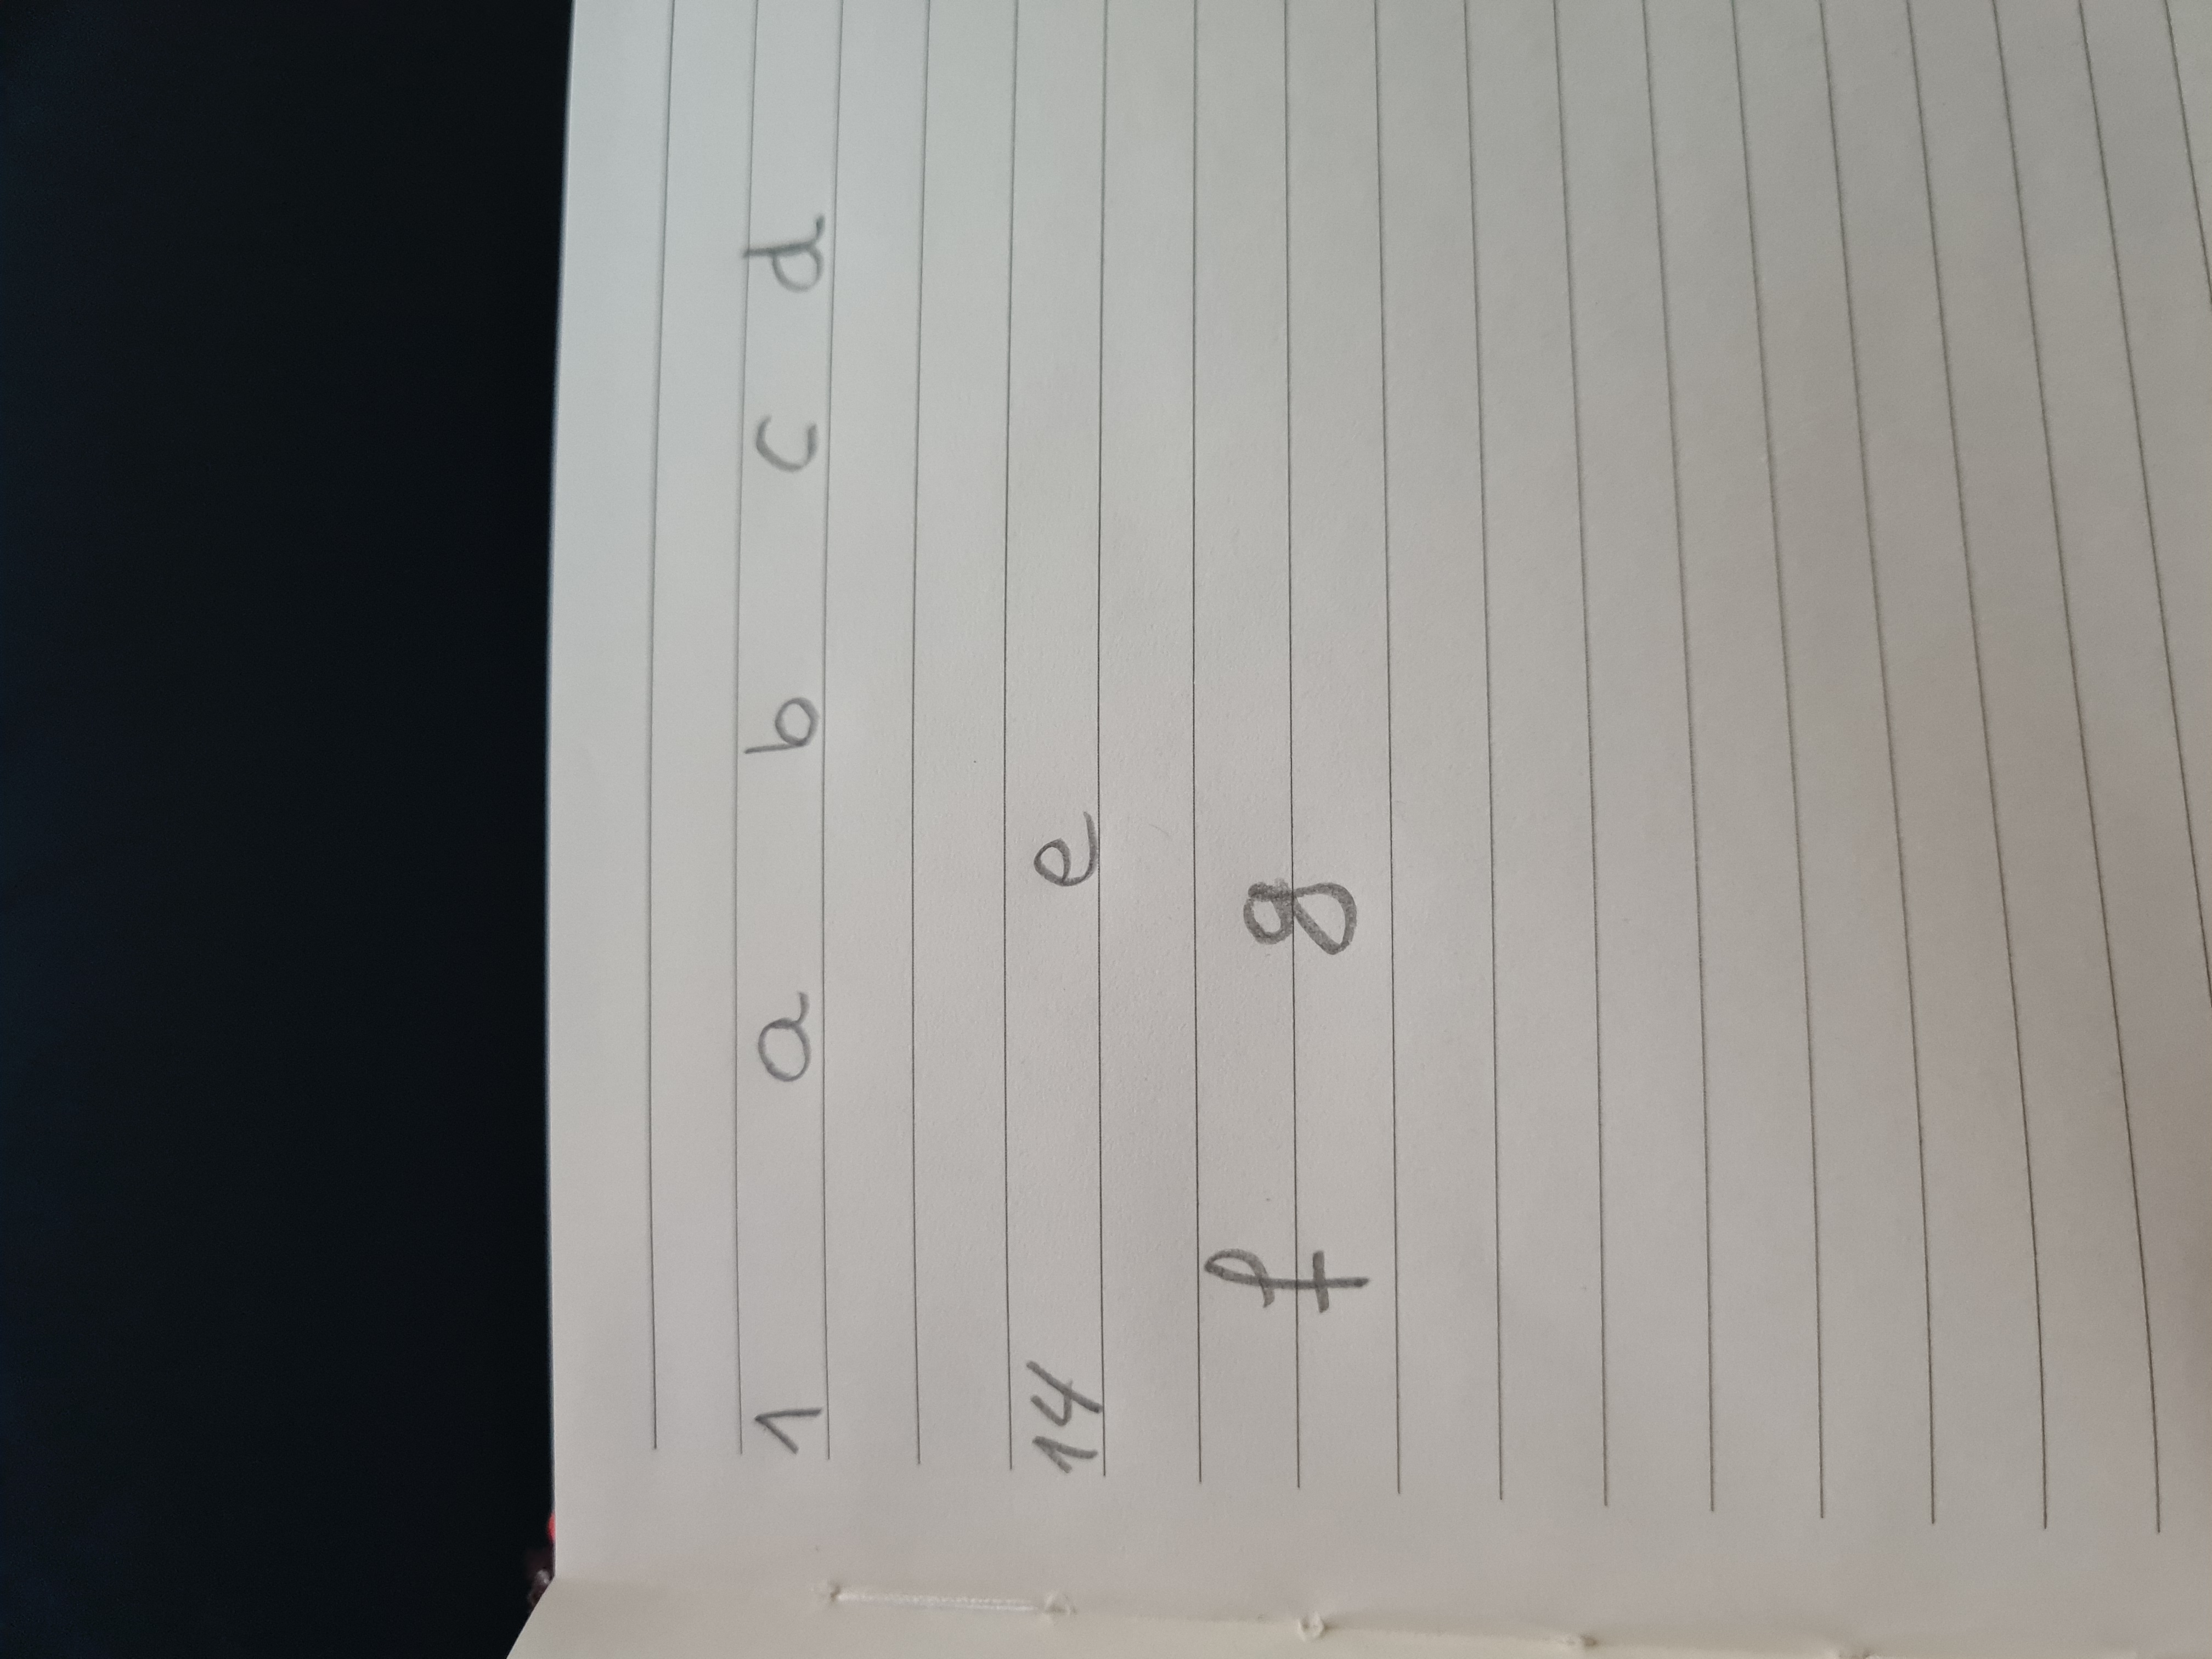 1 a b c d
14 e
f g